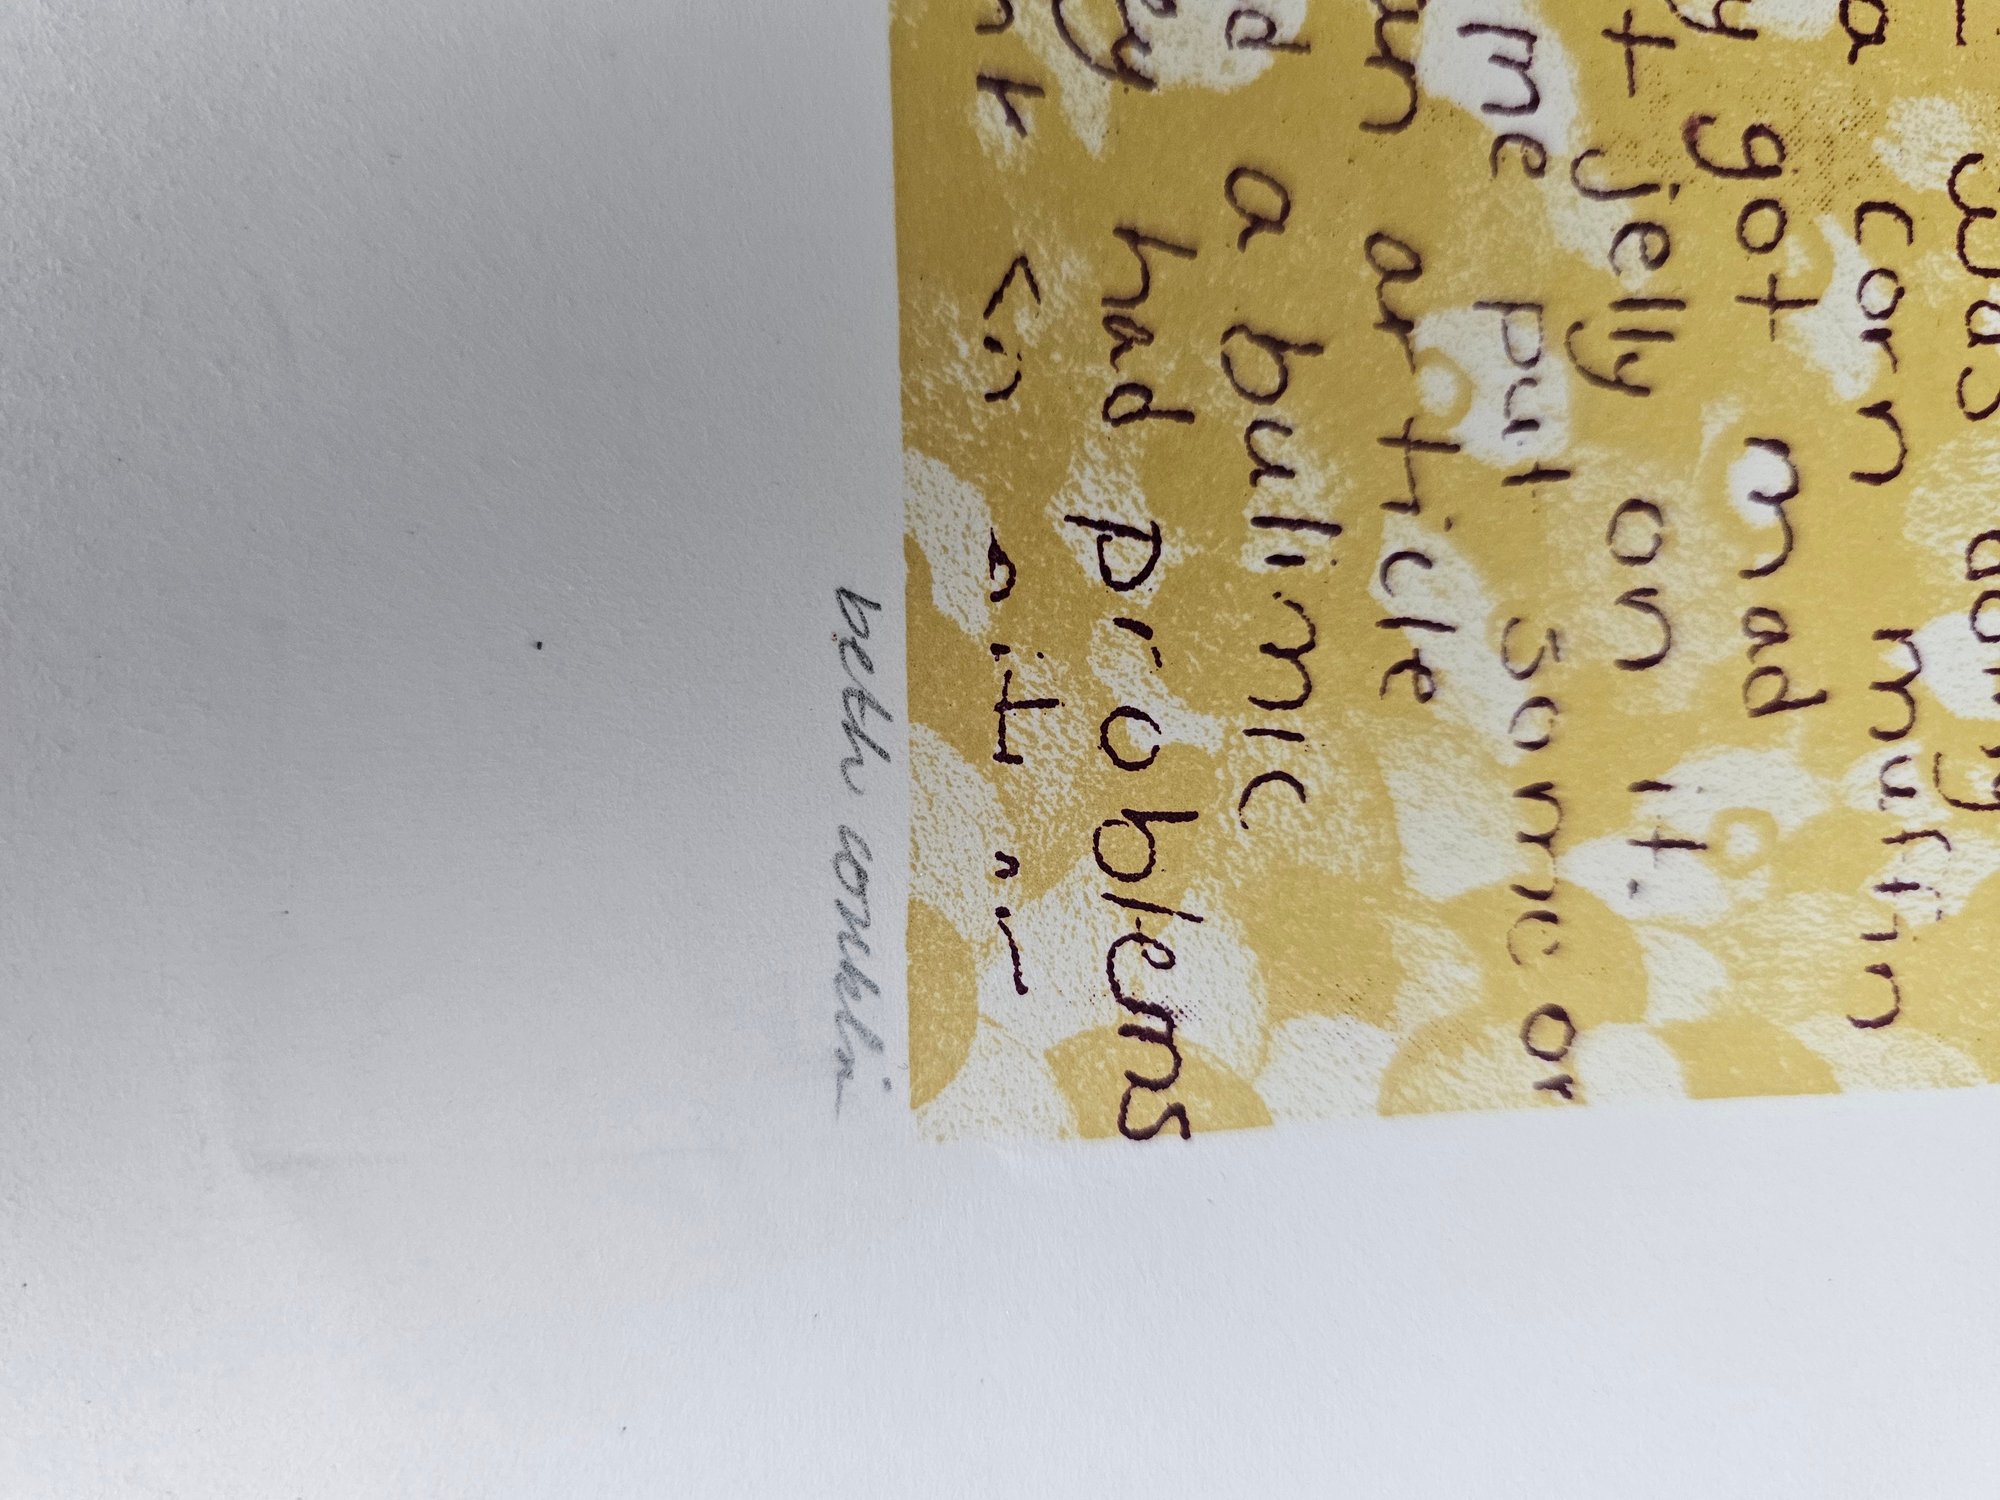 was doing
a corn muffin
y got mad
t jelly on it.
me put some or
an article
d a bulimic
ey had problems
beth conklin